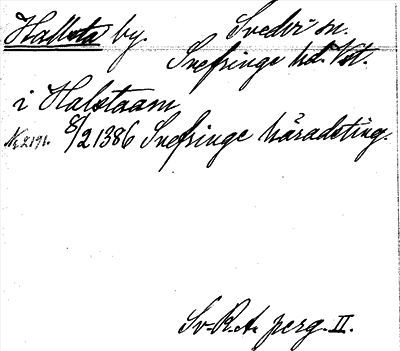 Hallsta by. Svedvi sn.
Snefringe hd. Vst.
i Halstaam
8/2 1386 Snefringe häradsting.
Sv. R. A. perg. II.